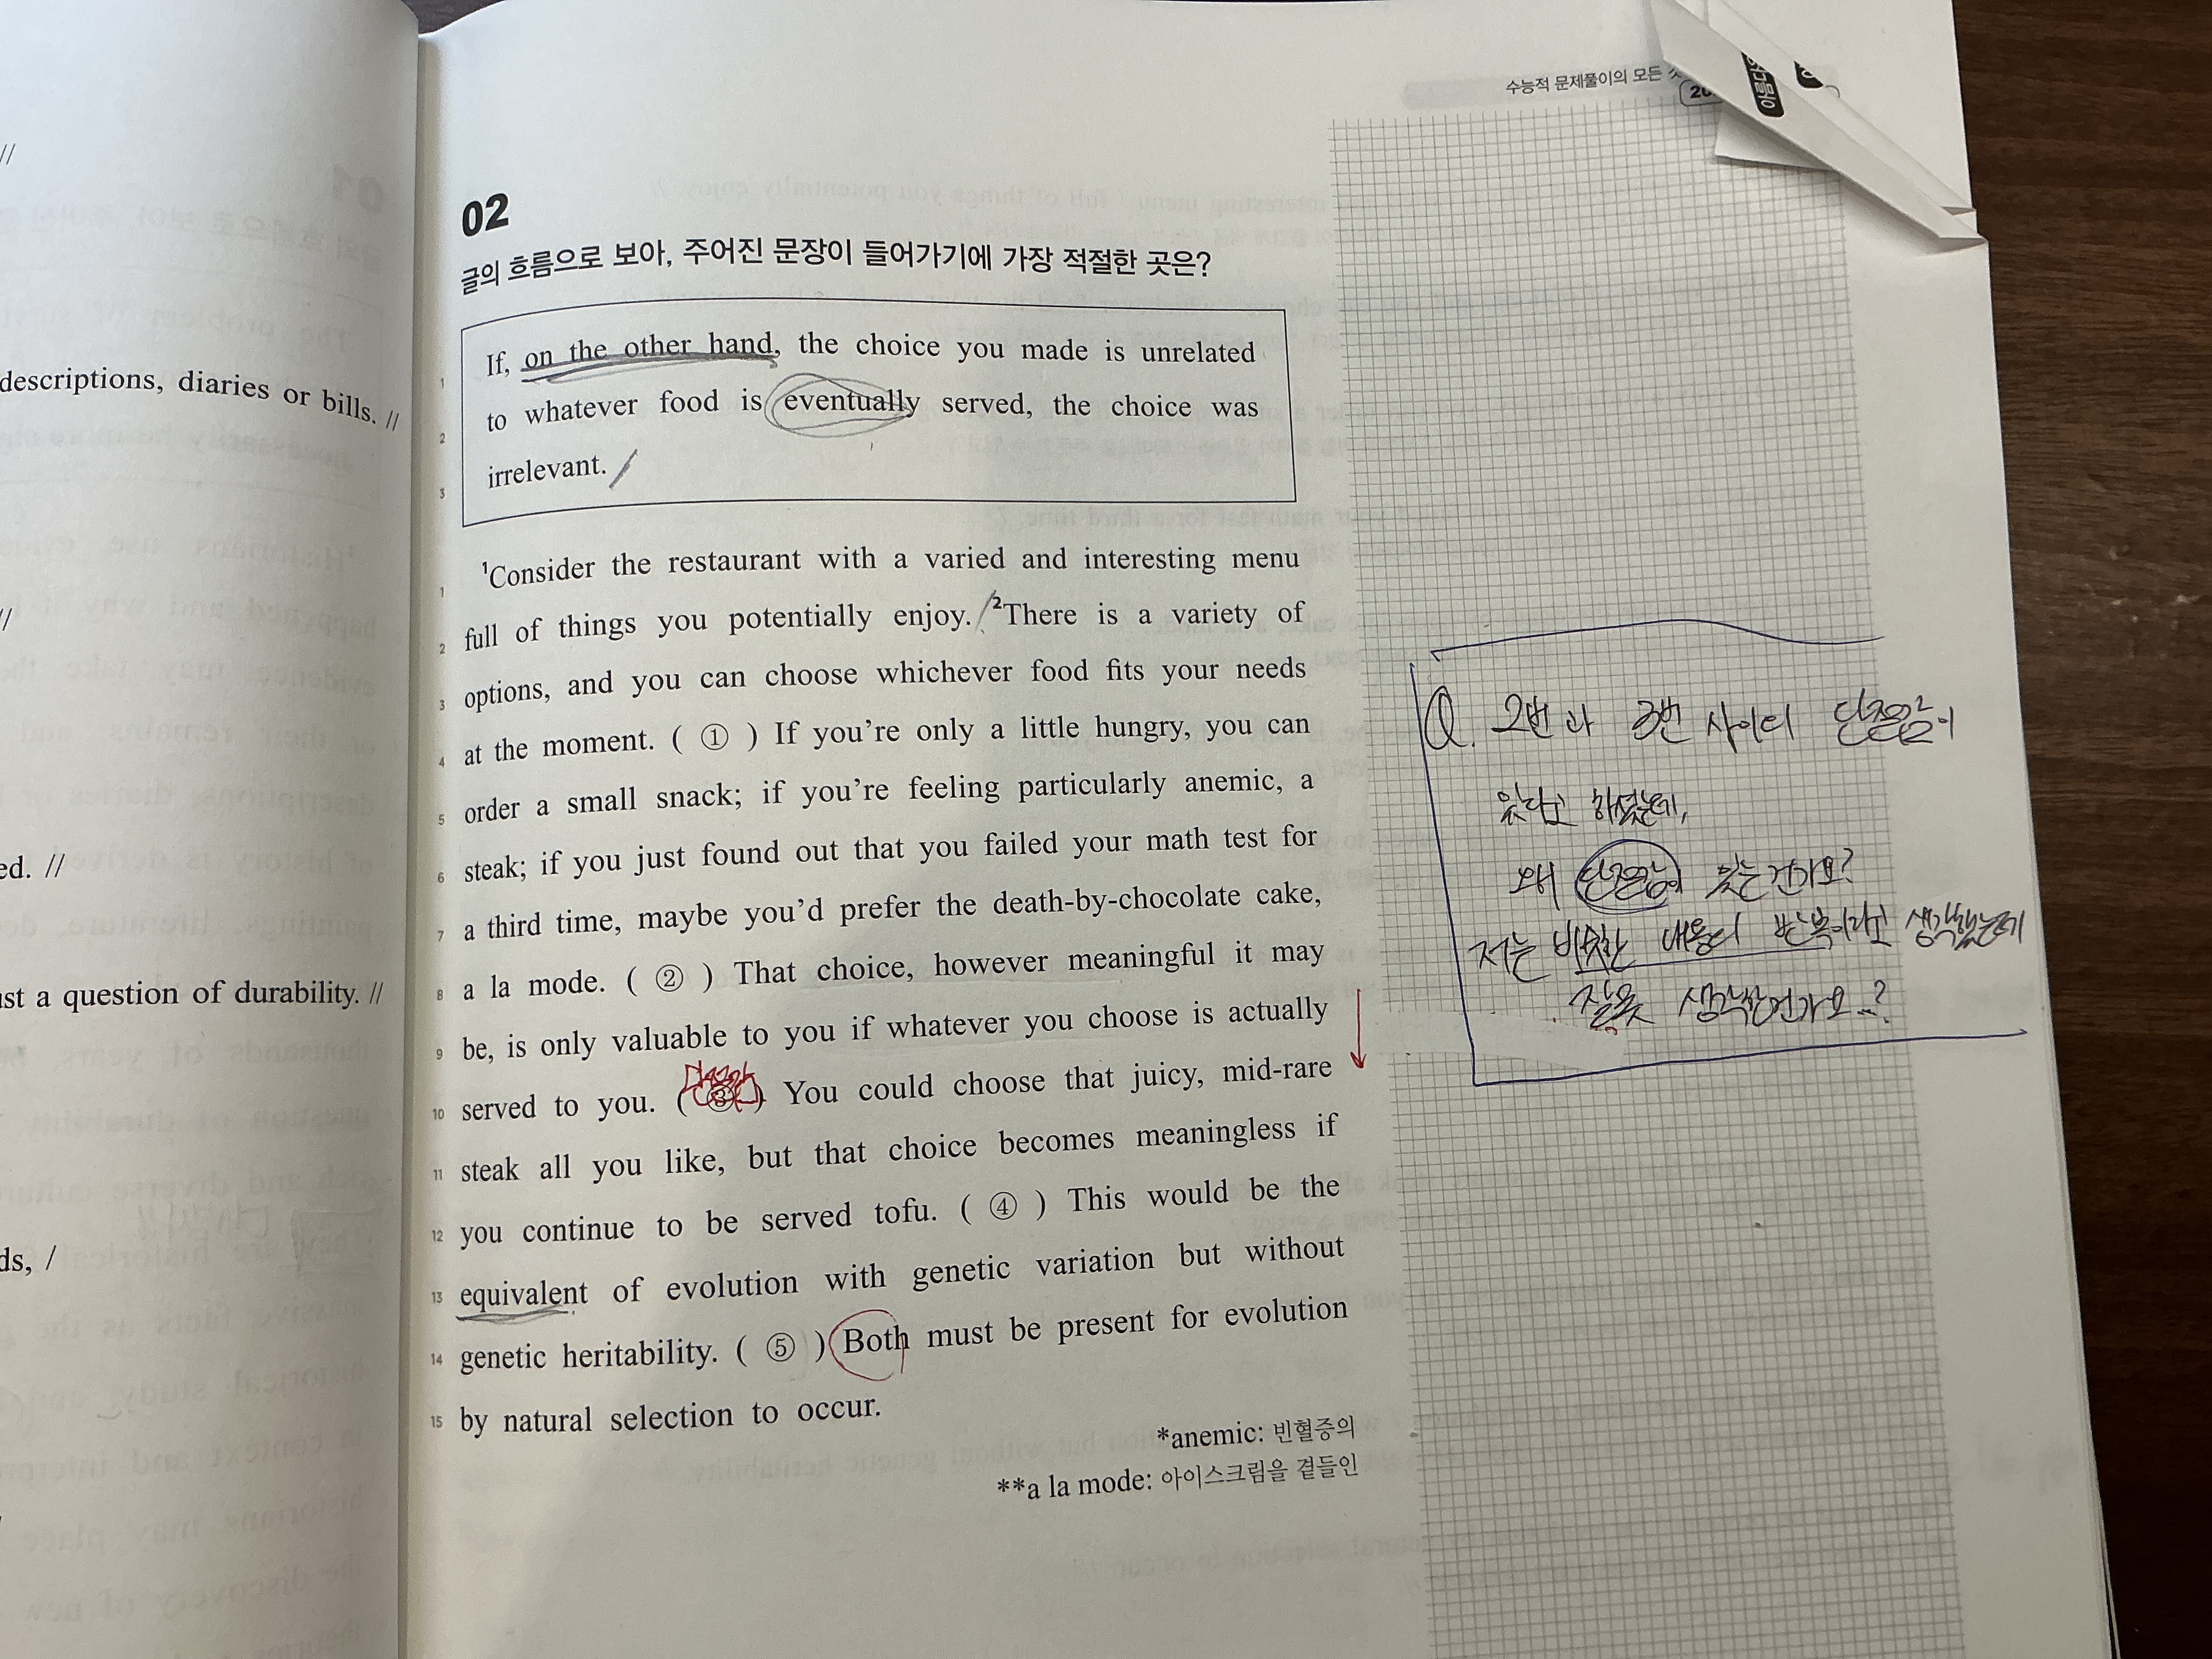 수능적 문제풀이의 모든
descriptions, diaries or bills. //
ed. //
ust a question of durability. //
ds, /
02
글의 흐름으로 보아, 주어진 문장이 들어가기에 가장 적절한 곳은?
1 If, on the other hand, the choice you made is unrelated
2 to whatever food is eventually served, the choice was
3 irrelevant. /
1 ¹Consider the restaurant with a varied and interesting menu
2 full of things you potentially enjoy. / ²There is a variety of
3 options, and you can choose whichever food fits your needs
4 at the moment. ( ① ) If you're only a little hungry, you can
5 order a small snack; if you're feeling particularly anemic, a
6 steak; if you just found out that you failed your math test for
7 a third time, maybe you'd prefer the death-by-chocolate cake,
8 a la mode. ( ② ) That choice, however meaningful it may
9 be, is only valuable to you if whatever you choose is actually
10 served to you. ( ③ ) You could choose that juicy, mid-rare
11 steak all you like, but that choice becomes meaningless if
12 you continue to be served tofu. ( ④ ) This would be the
13 equivalent of evolution with genetic variation but without
14 genetic heritability. ( ⑤ ) Both must be present for evolution
15 by natural selection to occur.
*anemic: 빈혈증의
**a la mode: 아이스크림을 곁들인
단절감
Q. 2번과 3번 사이에 단절감이
있다고 하셨는데,
왜 단절감이 있는건가요?
저는 비슷한 내용의 반복이라고 생각했는데
잘못 생각한건가요..?